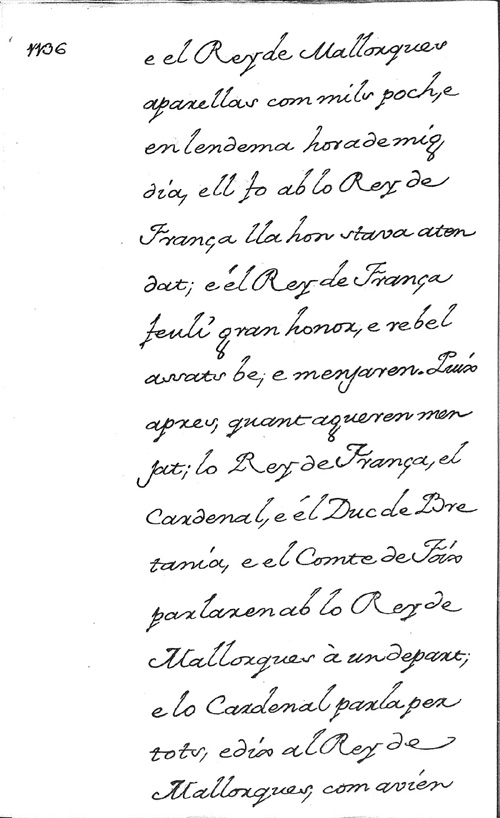 1136
e el Rey de Mallorques
aparellas com mils poch, e
en lendema hora de mig
dia, ell fo ab lo Rey de
França lla hon stava aten
dat; e él Rey de França
feuli gran honor, e rebel
assats be; e menjaren. Puix
apres, quant agueren men
jat; lo Rey de França, el
Cardenal, e él Duc de Bre
tania, e el Comte de Foix
parlaren ab lo Rey de
Mallorques à un depart;
e lo Cardenal parla per
tots, e dix al Rey de
Mallorques, com avien